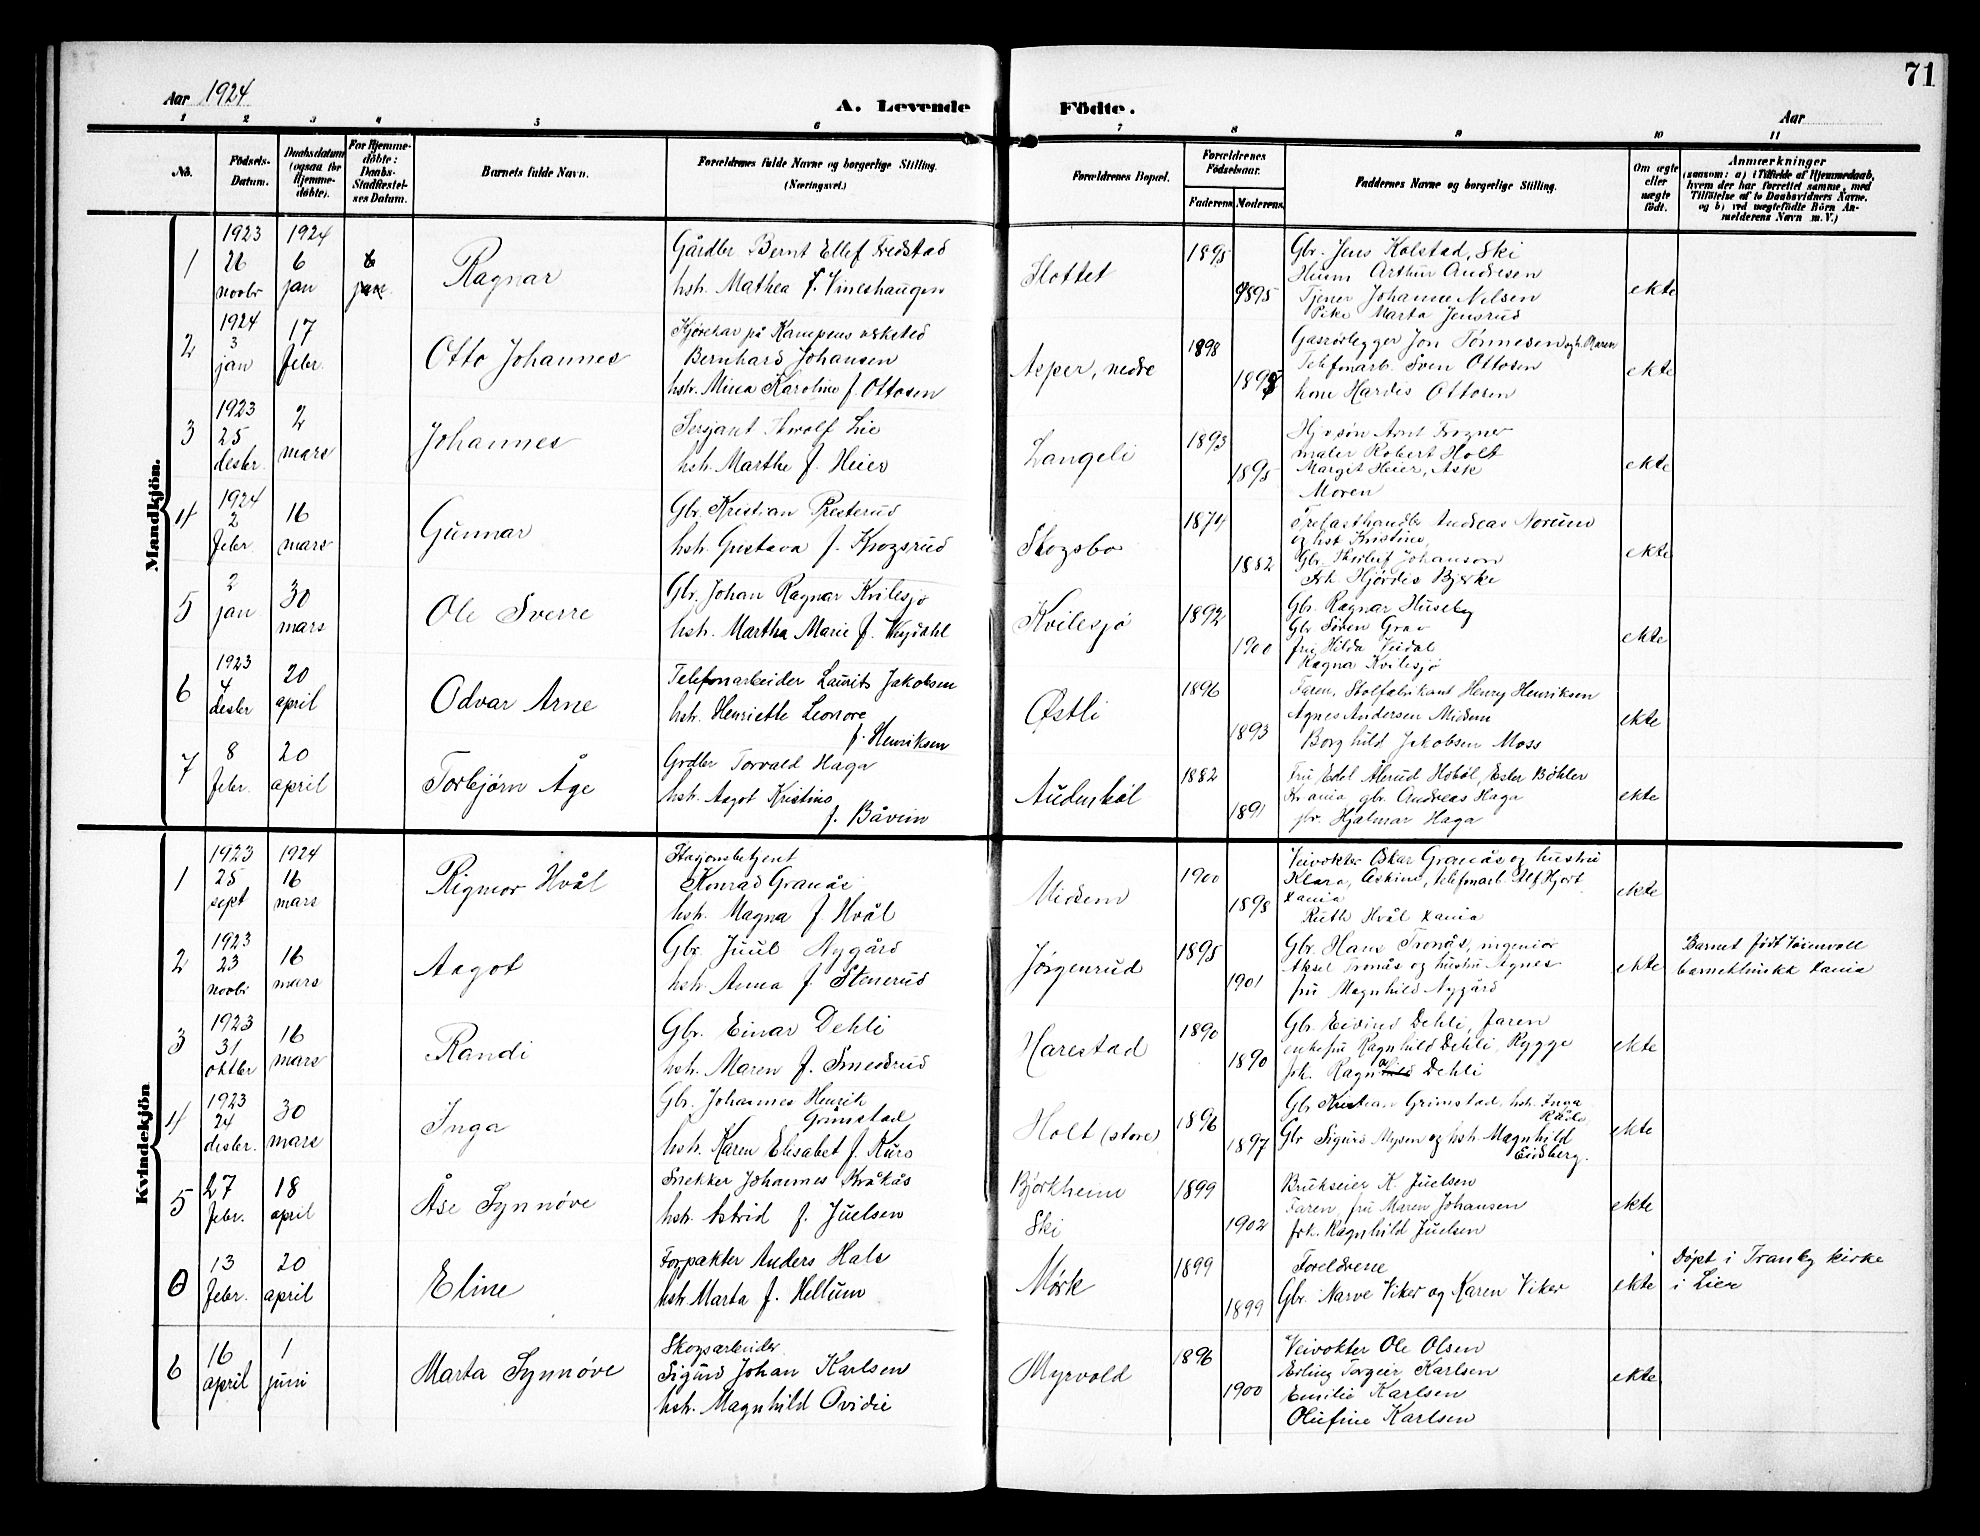 71
Aar 1924
A. Levende Födte.
Aar
1 2 3 4 5 6 7 8 9 10 11
No.
Födsels-Datum.
Daabsdatum (ogsaa for Hjemmedöbte).
For Hjemmedöbte: Daabs-Stadfæstelses Datum.
Barnets fulde Navn.
Forældrenes fulde Navne og borgerlige Stilling. (Næringsvei.)
Forældrenes Bopæl.
Forældrenes Födselsaar.
Faderens
Moderens
Faddernes Navne og borgerlige Stilling.
Om ægte eller uægte födt.
Anmærkninger (saasom: a) i Tilfælde af Hjemmedaab, hvem der har forrettet samme, med Tilföielse af to Daabsvidners Navne, og b) ved uægtefödte Börn Anmelderens Navn m. V.)
Mandkjön.
1
1923 26 novbr
1924 6 jan
6 jan.
Ragnar
Gårdbr Bernt Ellef Fredstad
hstr. Mathea f. Vineshaugen
Slottet
1895
1895
Gbr. Jens Kolstad, Ski
Arthur Andresen
Tjener Johanne Nilsen
Pike Marta Jensrud
ekte
2
1924 3 jan
17 febr.
Otto Johannes
Kjørekar på Kampens verksted
Bernhard Johansen
hstr. Mina Karoline f. Ottosen
Asper, nedre
1898
1898
Gasrørlegger Jon Tønnesen og h. Maren
Telefonarb. Sven Ottosen
kone Hardis Ottosen
ekte
3
1923 25 desbr.
2 mars
Johannes
Sersjant Lie
hstr. Marthe f. Heier
Langeli
1893
1895
Arnt Frogner
maler Robert Holt
Margit Heier, Ask
Moren
ekte
4
1924 2 febr.
16 mars
Gunnar
Gbr. Kristian Presterud
hstr. Gustava f. Krogsrud
Skogsbo
1874
1882
Trelasthandler Andreas Norum
og hst Kristine,
Gbr. Johanson
frk Hjørdis Bjerke
ekte
5
2 jan
30 mars
Ole Sverre
Gbr. Johan Ragnar Kvilesjø
hstr. Martha Marie f. Mysdahl
Kvilesjø
1892
1900
Gbr. Ragnar Huseby
Gbr Søren Grav
fru Hilda Veidal
Ragna Kvilesjø
ekte
6
1923 4 desbr
20 april
Odvar Arne
Telefonarbeider Laurits Jakobsen
hstr. Henriette Leonore
f. Henriksen
Østli
1896
1893
Faren, Stolfabrikant Henry Henriksen
Agnes Andersen Midsem
Borghild Jakobsen Moss
ekte
7
8 febr.
20 april
Torbjørn Åge
Grdbr Torvald Haga
hstr. Aagot Kristine
f. Båvein
Audenbøl
1882
1891
Fru Edel Ålerud Hobøl, Ester Bøhler
Kr.ania gbr. Andreas Haga
gbr. Hjalmar Haga
ekte
Kvindekjön
1
1923 25 sept
1924 16 mars
Rigmor Hvål
Stasjonsbetjent
Konrad Granås
hstr. Magna f Hvål
Midsem
1900
1898
Veivokter Oskar Granås og hustru
Klara, Askim, telefonarb. Alf Hjort
Xania
Ruth Hvål Xania
ekte
2
1923 23 novbr
16 mars
Aagot
Gbr. Juul Nygård
hstr. Anna f Stenerud
Jørgenrud
1895
1901
Gbr. Hans Tronås, ingeniør
Aksel Tronås og hustru Agnes
fru Magnhild Nygård
ekte
Barnet født Tøienvoll
barneklinikk Xania
3
1923 31 oktbr
16 mars
Randi
Gbr. Einar Dehli
hstr. Maren f. Smedsrud
Harestad
1890
1890
Gbr. Eivind Dehli, faren
enkefru Ragnhild Dehli, Rygge
frk. Ragna Dehli
ekte
4
1923 24 desbr.
30 mars
Inga
Gbr. Johannes Henrik
Grimstad
hstr. Karen Elisabet f. Kurø
Holt (store)
1896
1897
Gbr Kristian Grimstad, hstr. Inga
Råde
Gbr Sigurd Mysen og hstr. Magnhild
Eidsberg.
ekte
5
27 febr.
18 april
Åse Synnøve
Snekker Johannes Kråkås
hstr. Astrid f. Juelsen
Bjørkheim
Ski
1899
1902
Brukseier K. Juelsen
Faren, fru Maren Johansen
frk. Ragnhild Juelsen
ekte
0
13 febr.
20 april
Eline
Forpakter Anders Hals
hstr Marta f. Hellum
Mørk
1899
1899
Foreldrene
Gbr. Narve Viker og Karen Viker
ekte
Døpt i Tranby kirke
i Lier
6
16 april
1 juni
Marta Synnøve
Skogsarbeider
Sigurd Johan Karlsen
hstr. Magnhild Ovidie
Myrvold
1896
1900
Veivokter Ole Olsen
Erling Torgeir Karlsen
Emilie Karlsen
Olufine Karlsen
ekte